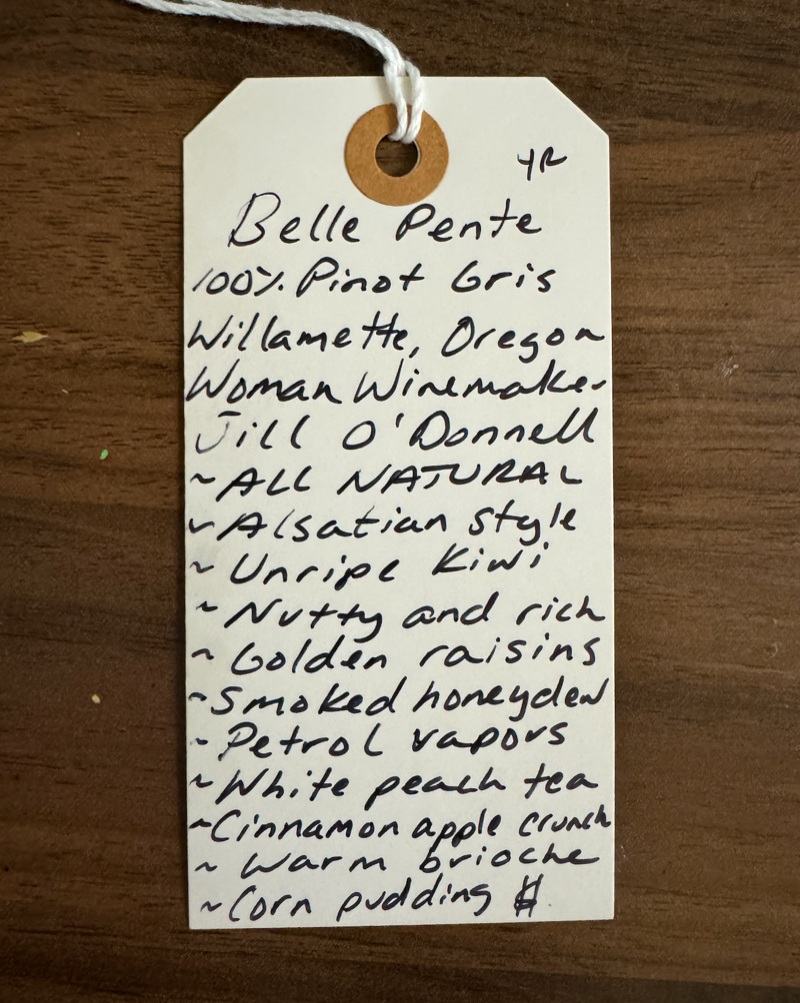 YR
Belle Pente
100% Pinot Gris
Willamette, Oregon
Woman Winemaker
Jill O'Donnell
~ALL NATURAL
~Alsatian style
~ Unripe Kiwi
~ Nutty and rich
~ Golden raisins
~Smoked honeydew
~Petrol vapors
~White peach tea
~Cinnamon apple crunch
~ Warm brioche
~Corn pudding